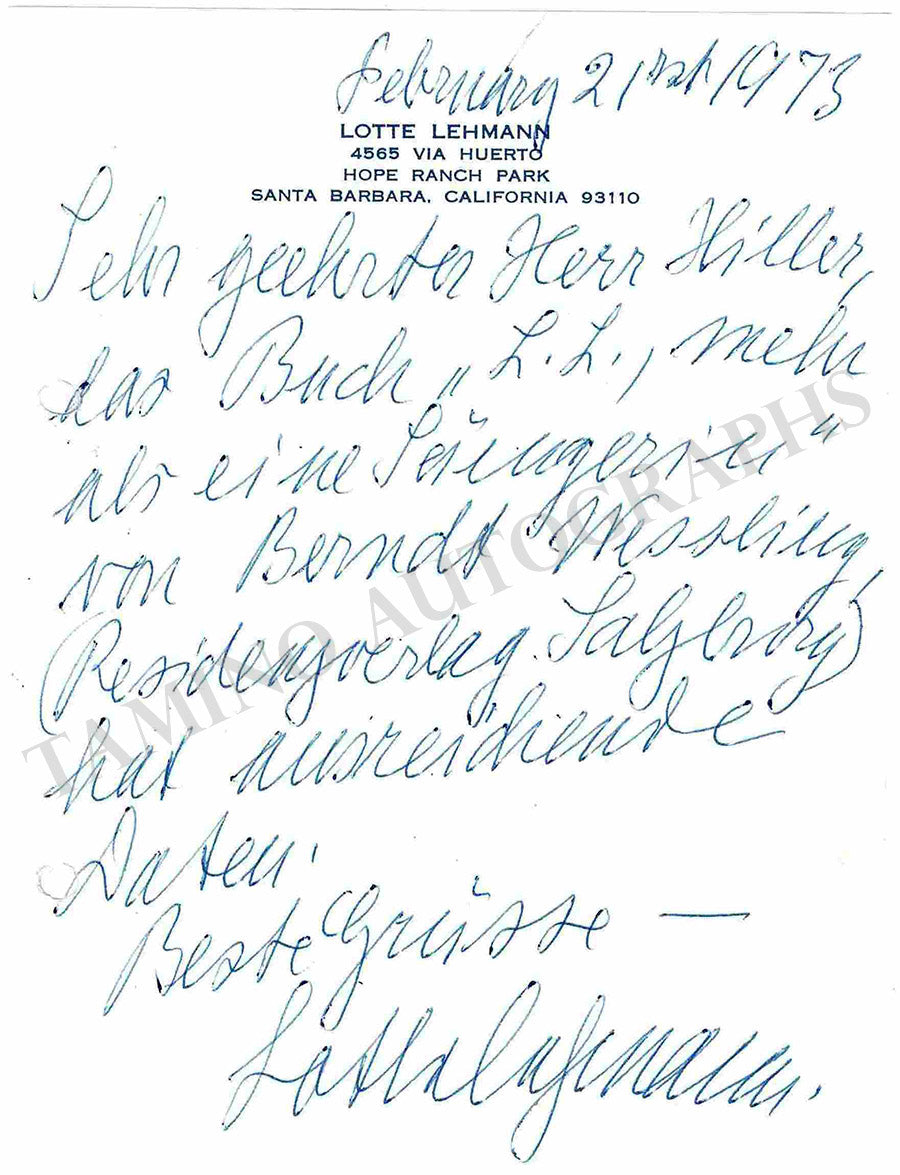 February 21rst 1973
LOTTE LEHMANN
4565 VIA HUERTO
HOPE RANCH PARK
SANTA BARBARA, CALIFORNIA 93110
Sehr geehrter Herr Hiller,
das Buch „L.L., mehr
als eine Sängerin“
von Berndt Wessling,
(Residenzverlag Salzburg)
hat ausreichende
Daten.
Beste Grüsse —
Lotte Lehmann.
TAMINO AUTOGRAPHS